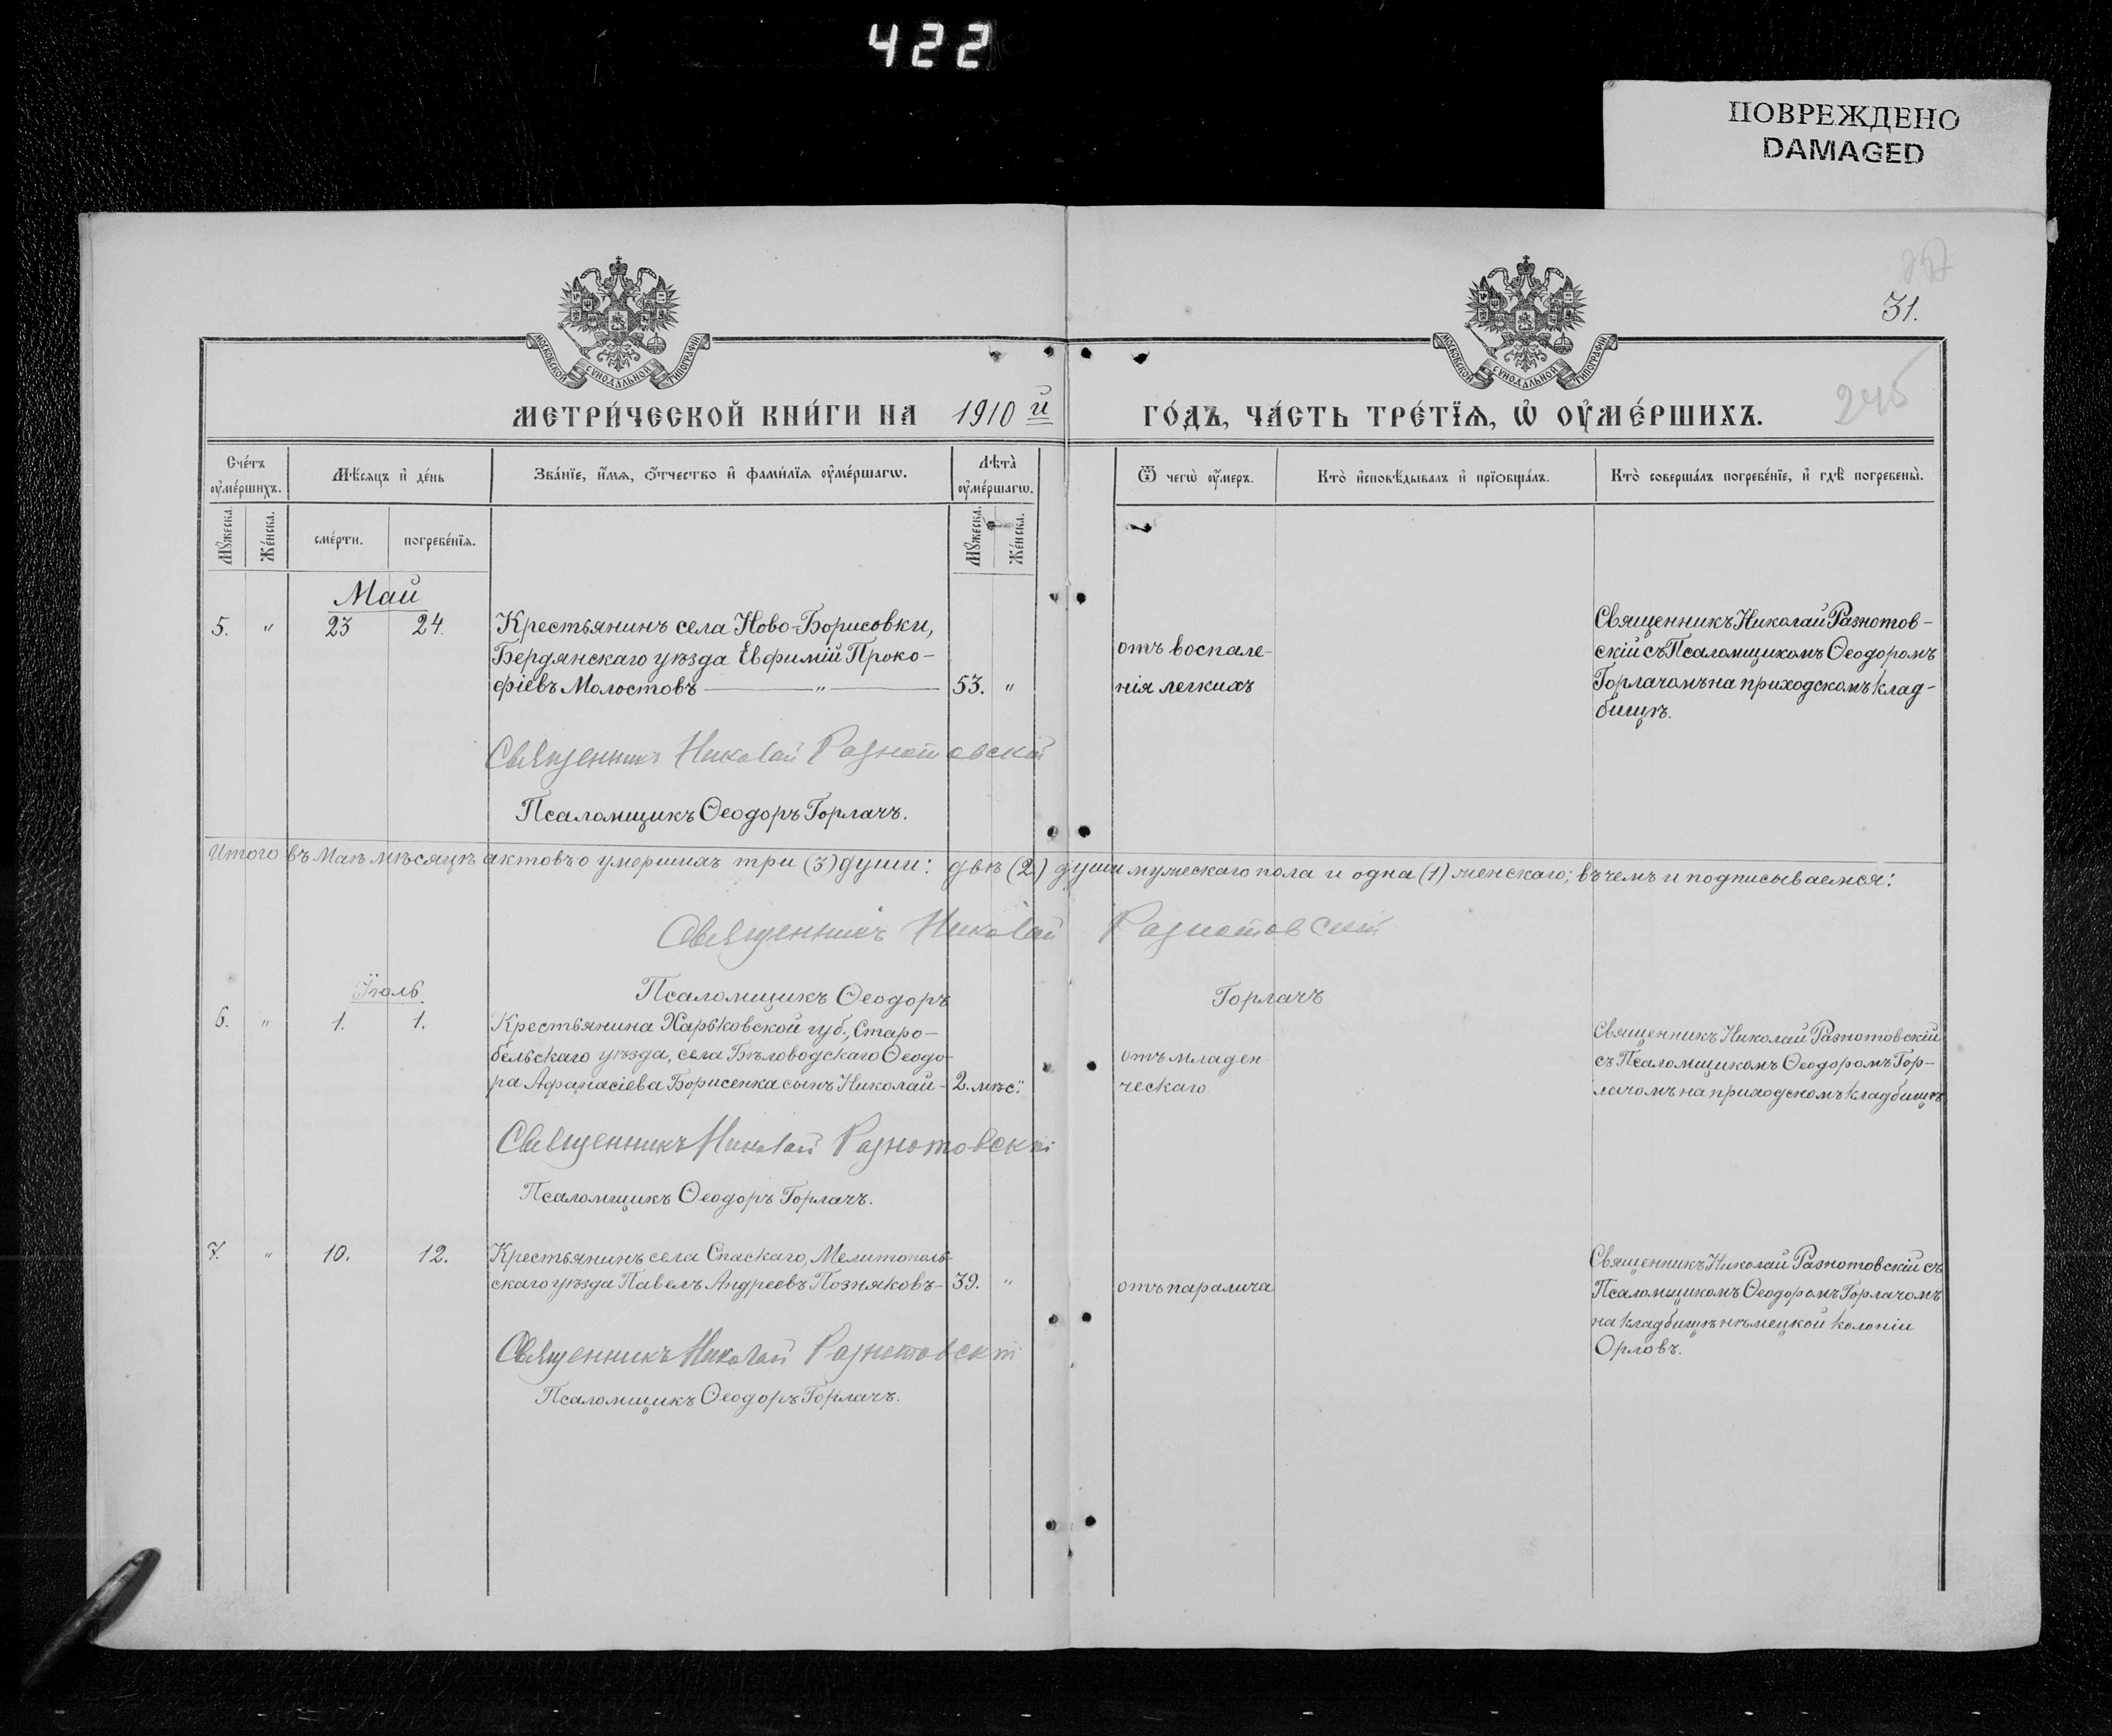 422
ПОВРЕЖДЕНО
DAMAGED
31.
245
МОСКОВСКОЙ СУНОДАЛЬНОЙ ТИПОГРАФІИ
МОСКОВСКОЙ СУНОДАЛЬНОЙ ТИПОГРАФІИ
МЕТРИ́ЧЕСКОЙ КНИ́ГИ НА 1910й ГО́ДЪ, ЧА́СТЬ ТРЕ́ТІѦ, Ѡ ОУ҆МЕ́РШИХЪ.
Сче́тъ оу҆ме́ршихъ.
Мѣ́сяцъ и҆ де́нь
Зва́нїе, и҆́мѧ, ѻ҆́тчество и҆ фами́лїѧ оу҆ме́ршагѡ.
Лѣта̀ оу҆ме́ршагѡ.
Ѿ чегѡ̀ оу҆́меръ.
Кто̀ и҆сповѣ́дывалъ и҆ прїѡбща́лъ.
Кто̀ соверша́лъ погребе́нїе, и҆ гдѣ̀ погребены̀.
Мꙋ́жеска.
Же́нска.
сме́рти.
погребе́нїѧ.
Мꙋ́жеска.
Же́нска.
Май
5. " 23 24. Крестьянинъ села Ново-Борисовки,
Бердянскаго уѣзда Евфимій Проко-
фіевъ Молостовъ — " — 53. "
отъ воспале-
нія легкихъ
Священникъ Николай Разнотов-
скій съ Псаломщикомъ Ѳеодоромъ
Горлачомъ на приходскомъ клад-
бищѣ.
Священникъ Николай Разнотовскій
Псаломщикъ Ѳеодоръ Горлачъ.
Итого въ Маѣ мѣсяцѣ актовъ о умершихъ три (3) души: двѣ (2) души мужескаго пола и одна (1) женскаго; въ чемъ и подписываемся:
Священникъ Николай Разнотовскій
Псаломщикъ Ѳеодоръ Горлачъ
Іюль
6. " 1. 1. Крестьянина Харьковской губ., Старо-
бельскаго уѣзда, села Бѣловодскаго Ѳеодо-
ра Аѳанасіева Борисенка сынъ Николай - 2. мѣс. "
отъ младен-
ческаго
Священникъ Николай Разнотовскій
съ Псаломщикомъ Ѳеодоромъ Гор-
лачомъ на приходскомъ кладбищѣ
Священникъ Николай Разнотовскій
Псаломщикъ Ѳеодоръ Горлачъ.
7. " 10. 12. Крестьянинъ села Спаскаго, Мелитополь-
скаго уѣзда Павелъ Андреевъ Позняковъ - 39. "
отъ паралича
Священникъ Николай Разнотовскій съ
Псаломщикомъ Ѳеодоромъ Горлачомъ
на кладбищѣ нѣмецкой колоніи
Орловъ.
Священникъ Николай Разнотовскій
Псаломщикъ Ѳеодоръ Горлачъ.